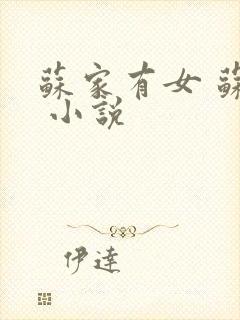 蘇家有女 蘇
小説
伊達